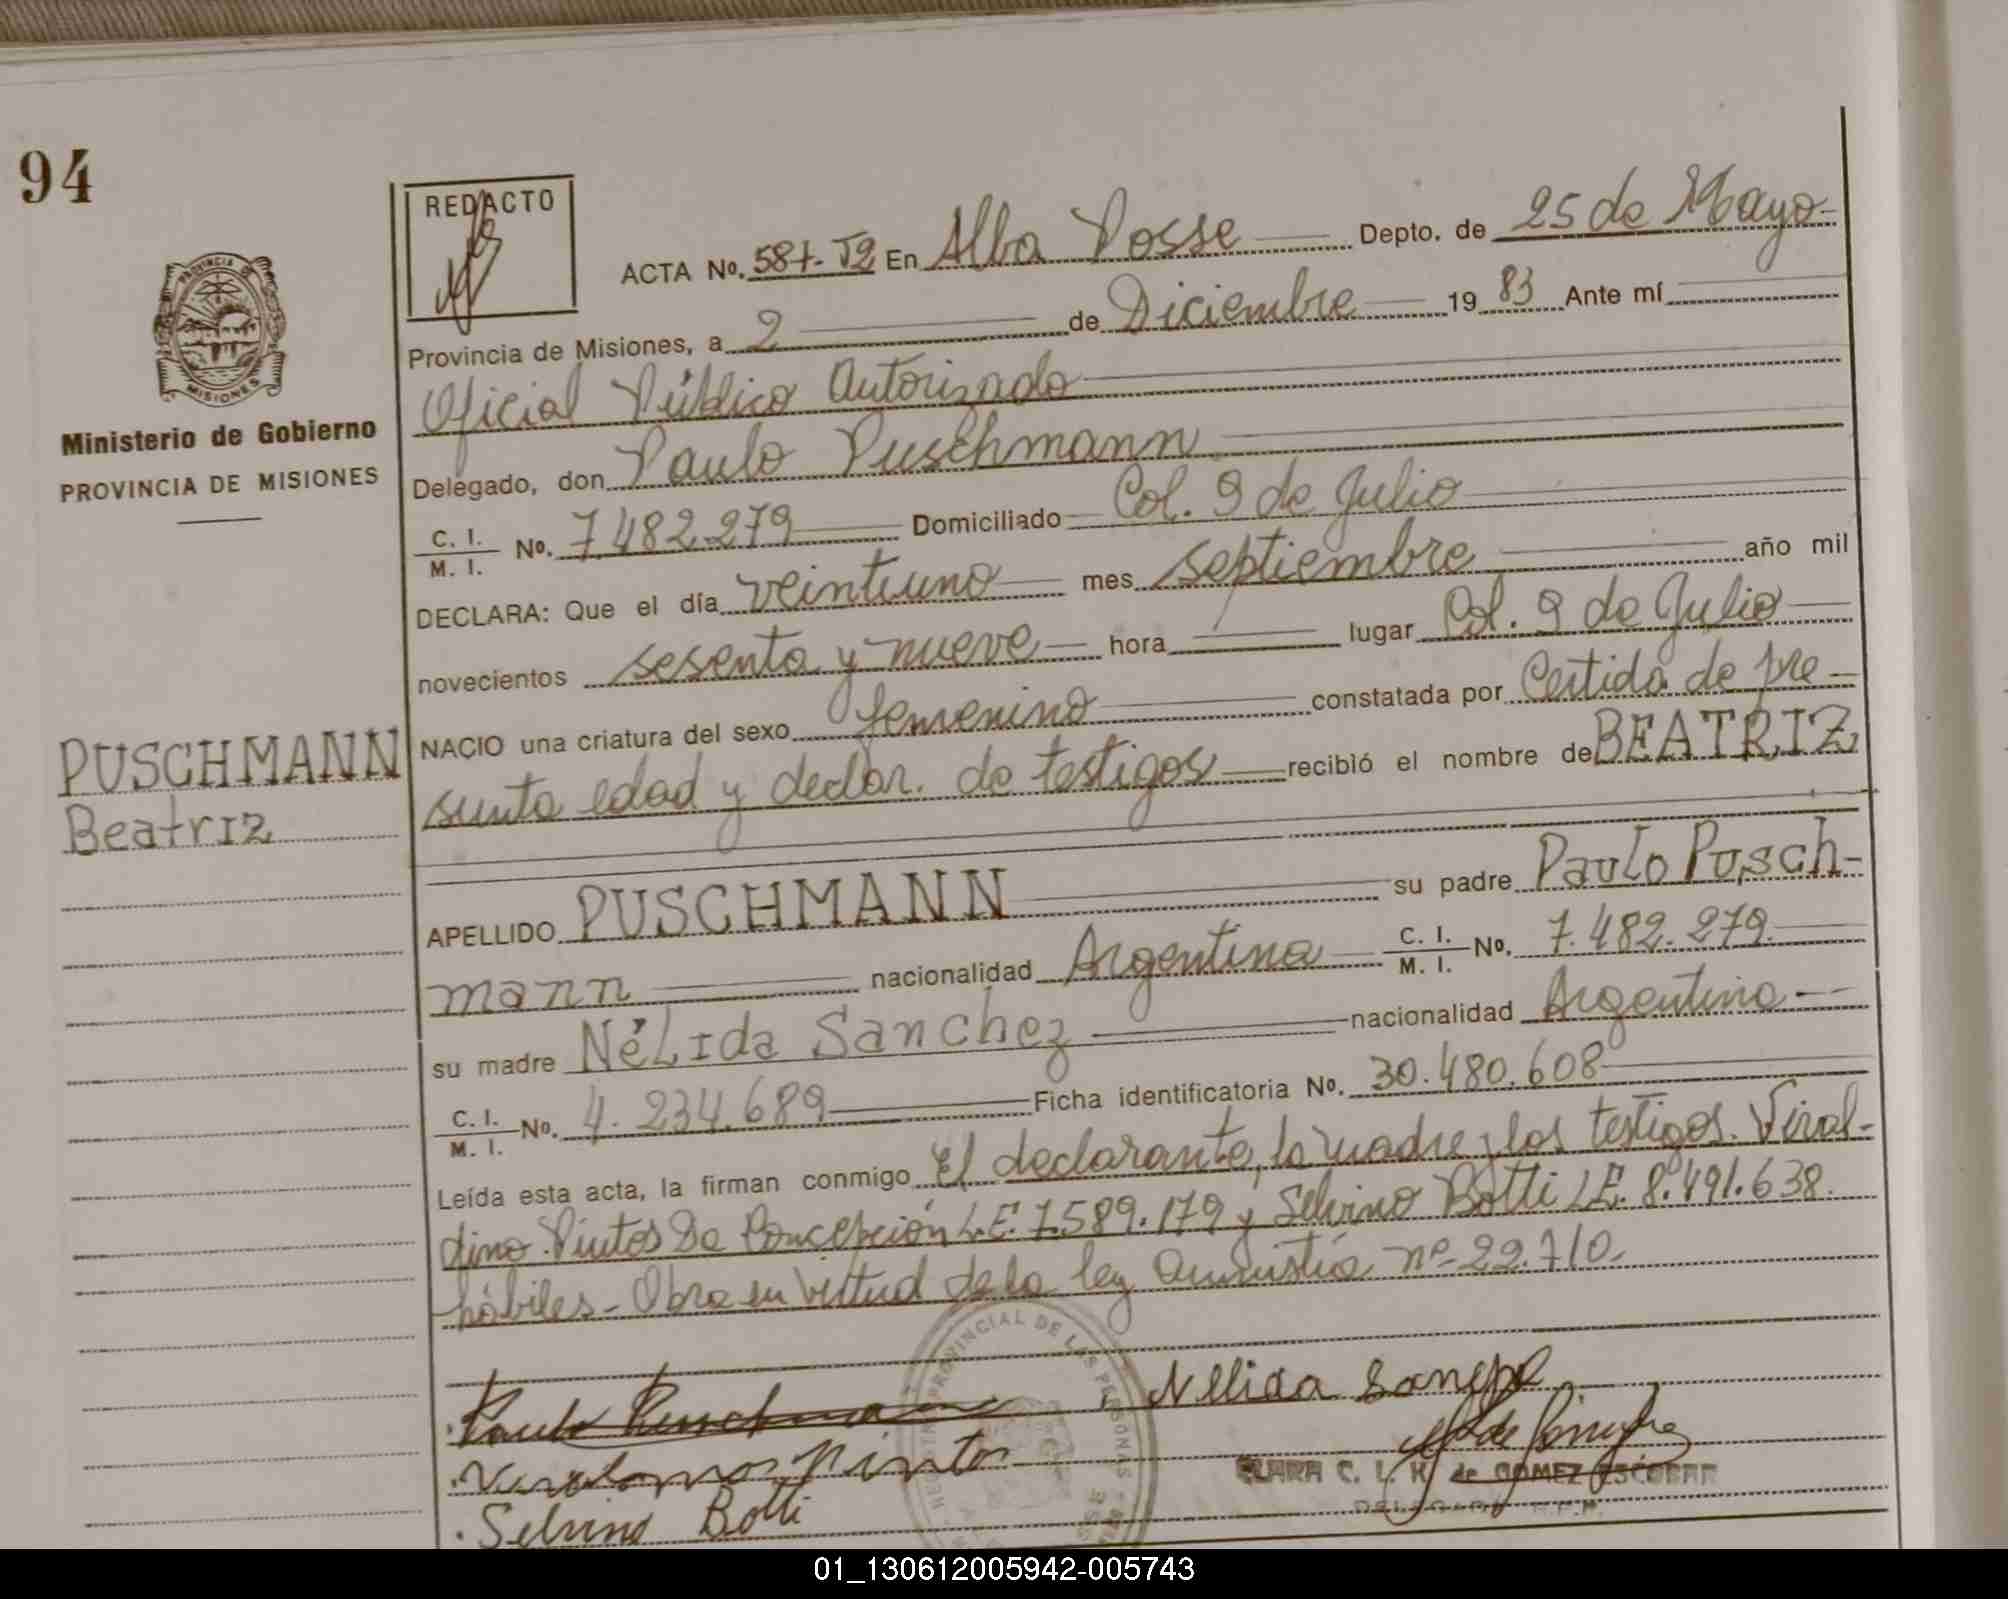 94
REDACTO
ACTA No. 587- T2 En Alba Posse Depto. de 25 de Mayo
Provincia de Misiones, a 2 de Diciembre 19 83 Ante mí
Oficial Público Autorizado
Delegado, don Paulo Puschmann
C. I. / M. I. No. 7.482.279 Domiciliado Col. 9 de Julio
DECLARA: Que el día veintiuno mes septiembre año mil
novecientos sesenta y nueve hora lugar Col. 9 de Julio
NACIO una criatura del sexo femenino constatada por Certida de pre-
sunta edad y declar. de testigos recibió el nombre de BEATRIZ
APELLIDO PUSCHMANN su padre Paulo Pusch-
mann nacionalidad Argentina C. I. / M. I. No. 7.482.279
su madre Nélida Sanchez nacionalidad Argentina
C. I. / M. I. No. 4.234.689 Ficha identificatoria No. 30.480.608
Leída esta acta, la firman conmigo El declarante, la madre y los testigos. Viral-
dino Pintos De Concepción L.E. 7.589.179 y Selvino Botti L.E. 8.491.638.
hábiles - Obra en virtud de la ley Amnistía nº 22.710.
Paulo Puschmann
Nellida
Pinto
Selvino Botti
CLARA C. L. K. de GOMEZ ESCOBAR
PROVINCIA DE
MISIONES
Ministerio de Gobierno
PROVINCIA DE MISIONES
PUSCHMANN
Beatriz
PROVINCIAL DE LAS PERSONAS
01_130612005942-005743